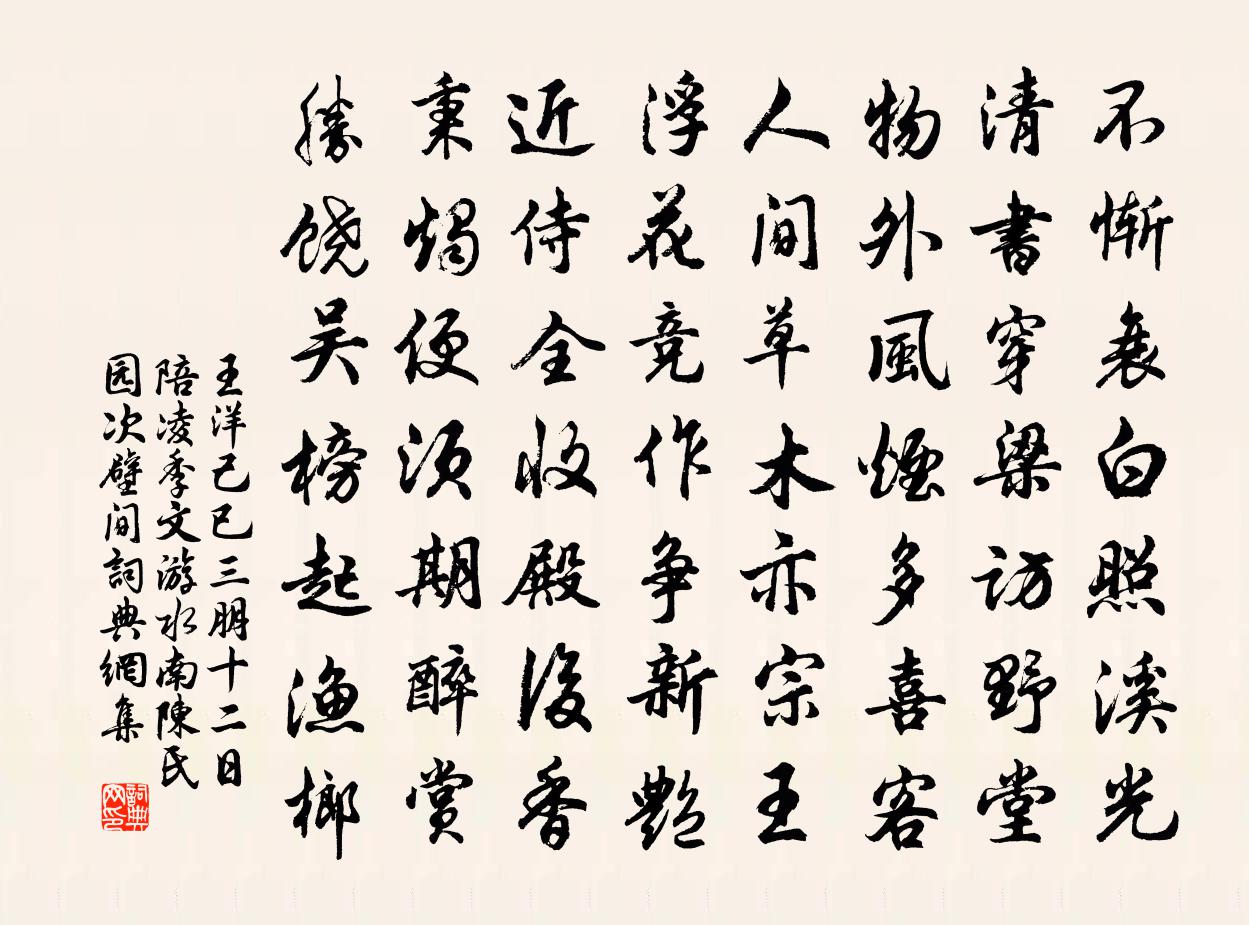 不惭衰白照溪光
清書穿梁访野堂
物外風煙多喜客
人间草木亦宗王
浮花竞作争新艷
近侍全收殿後香
秉燭便须期醉赏
勝饶吴榜起渔榔
王洋己巳三朋十二日
陪凌季文游水南陳氏
园次壁间詞典網集
詞典网印